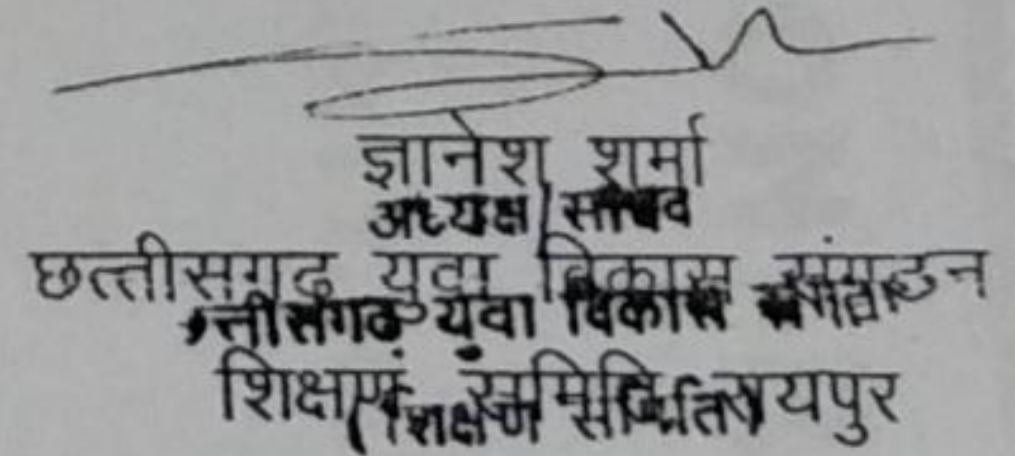 ज्ञानेश शर्मा
अध्यक्ष/सचिव
छत्तीसगढ़ युवा विकास संगठन
छत्तीसगढ युवा विकास संगठन
शिक्षण समिति रायपुर
(शिक्षण समिति)